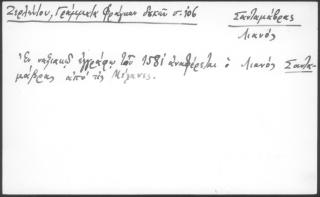 Ζερλέντου, Γράμματα Φράγκων δουκῶν σ. 106
Σανταμάβρας
Λιανός
Ἐν ναξιακῷ ἐγγράφῳ τοῦ 1581 ἀναφέρεται ὁ Λιανός Σαντα-
μάβρας ἀπό τις Μέλανες.